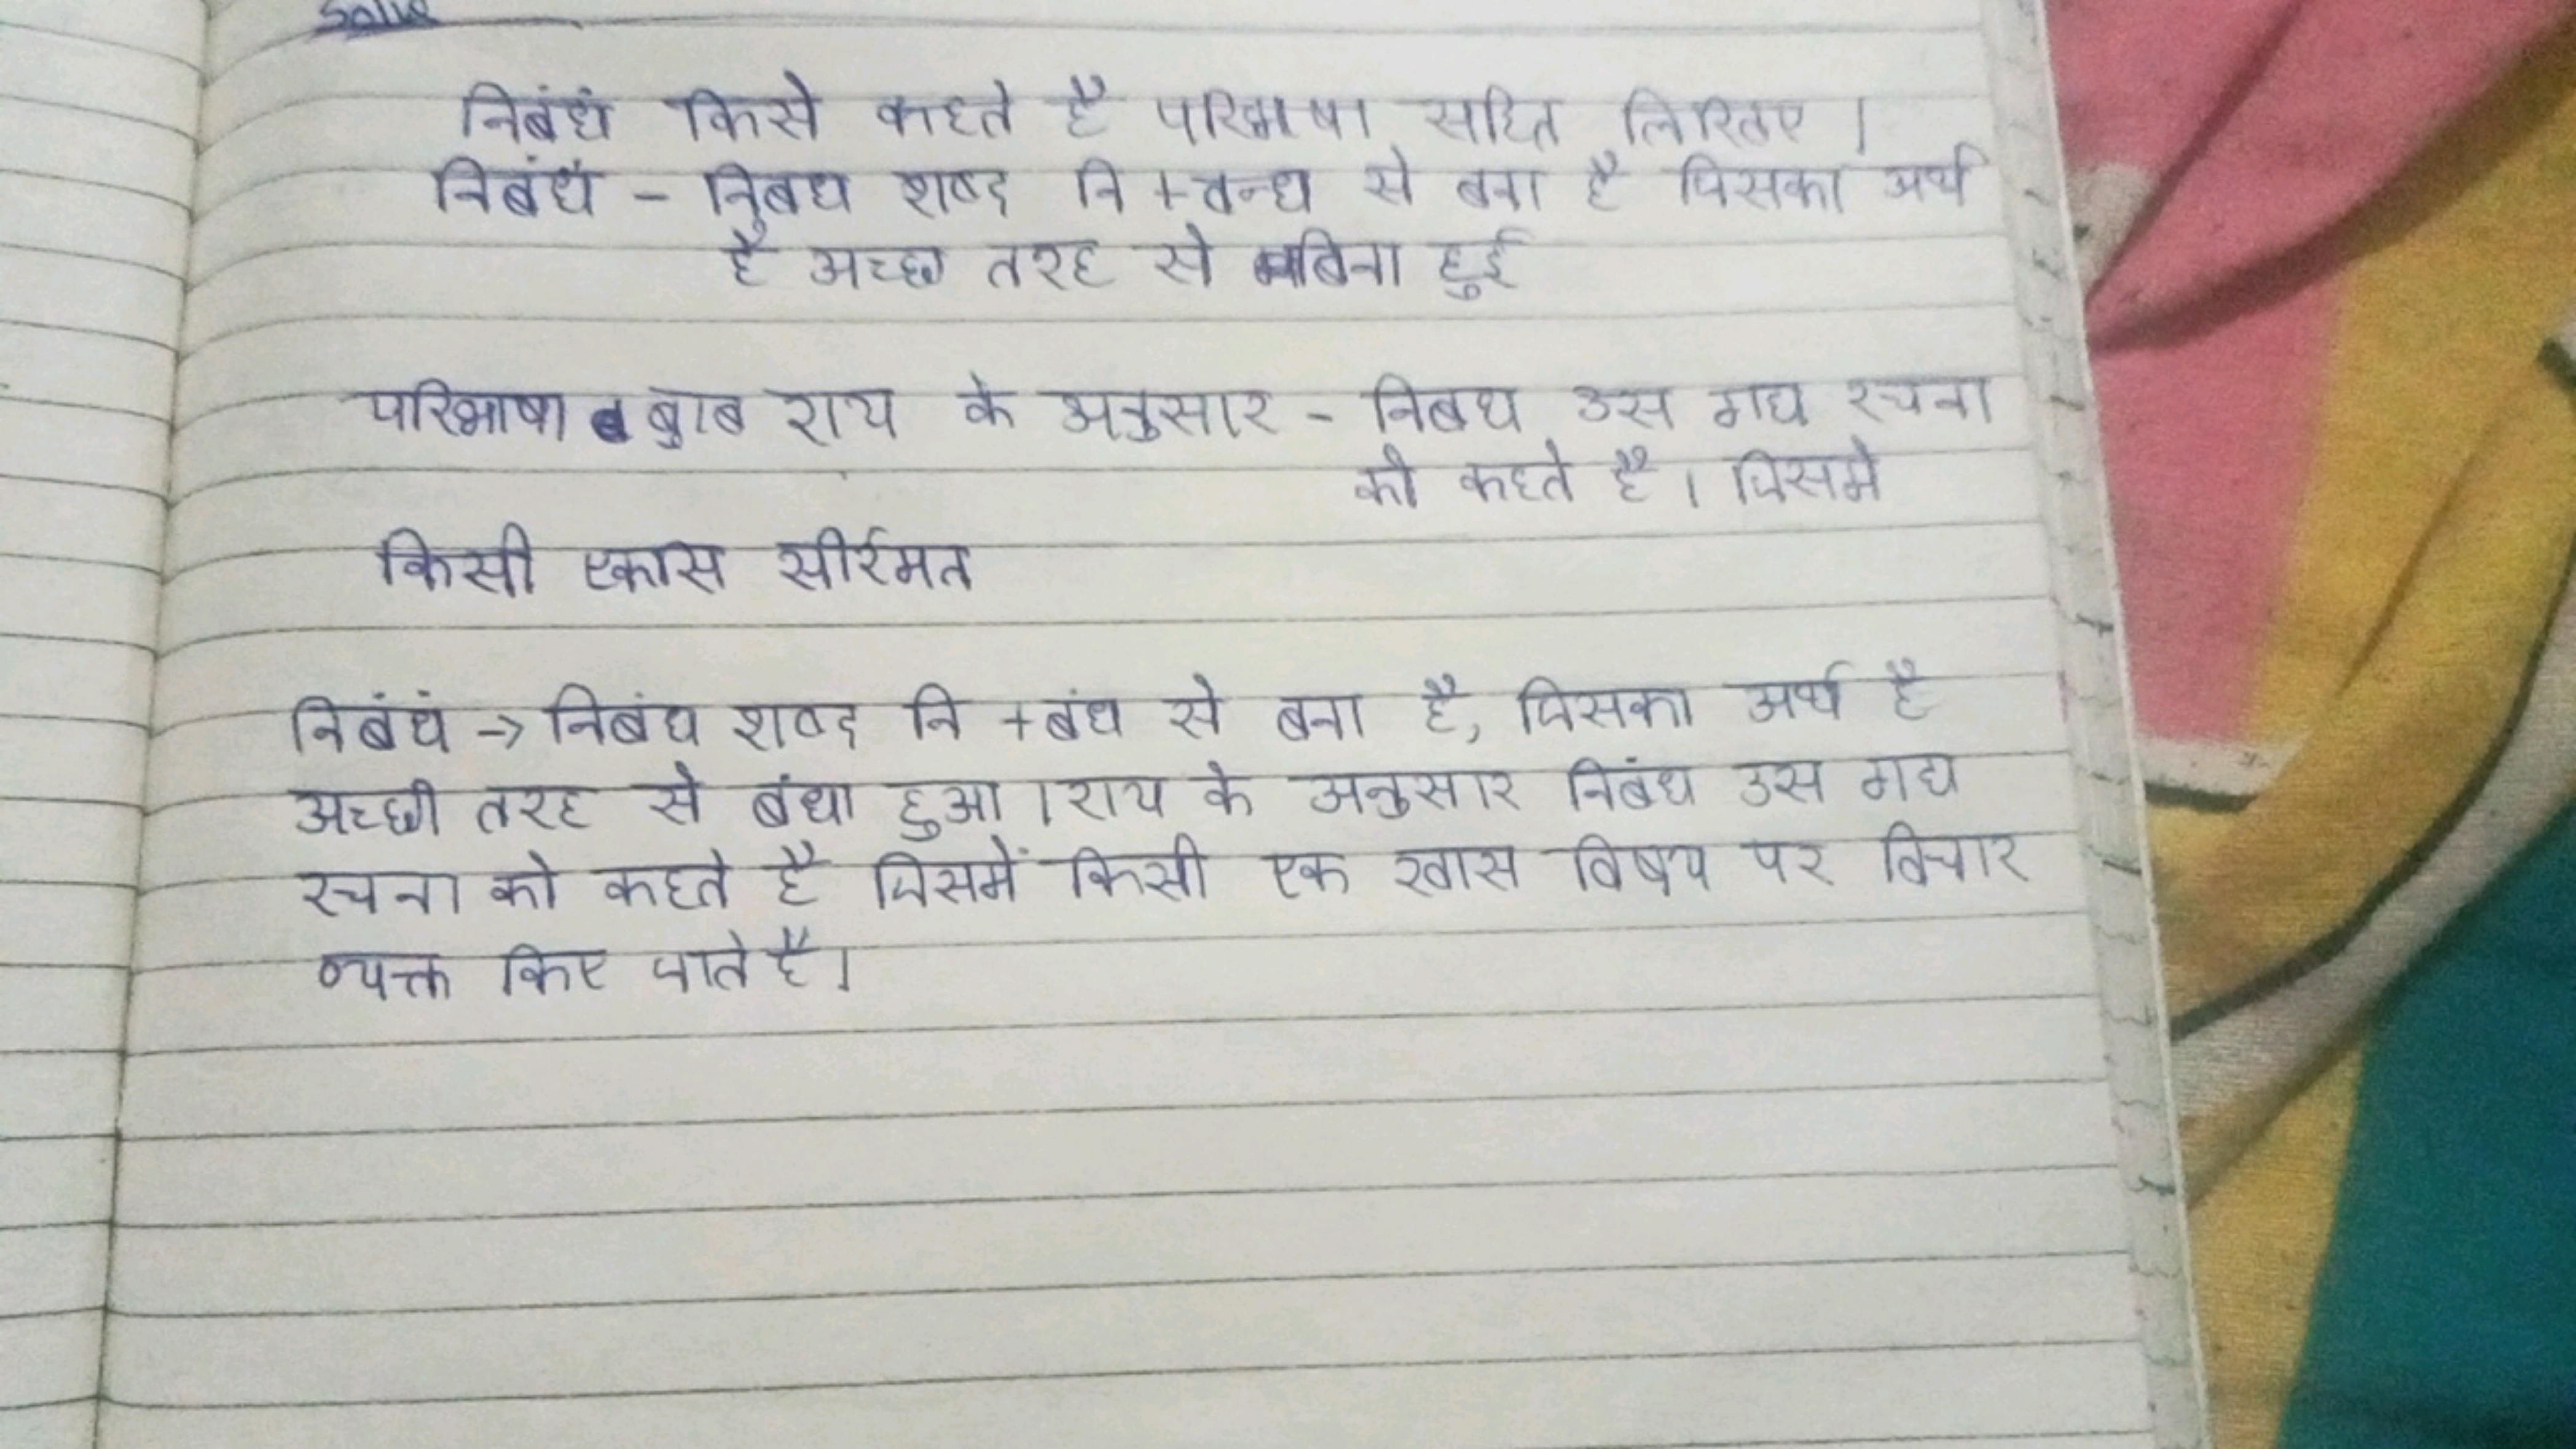 निबंधं किसे कहते है परिभाषा सहित लिखिए ।
निबंधं - निबध शब्द नि + बन्ध से बना है जिसका अर्थ
है अच्छा तरह से बिना हुई
परिभाषा बुाब राय के अनुसार - निबध उस गद्य रचना
को कहते है । जिसमे
किसी एकास
निबंधं → निबंध शब्द नि + बंध से बना है, जिसका अर्थ है
अच्छी तरह से बंधा हुआ । राय के अनुसार निबंध उस गद्य
रचना को कहते है जिसमें किसी एक खास विषय पर विचार
व्यक्त किए जाते है ।